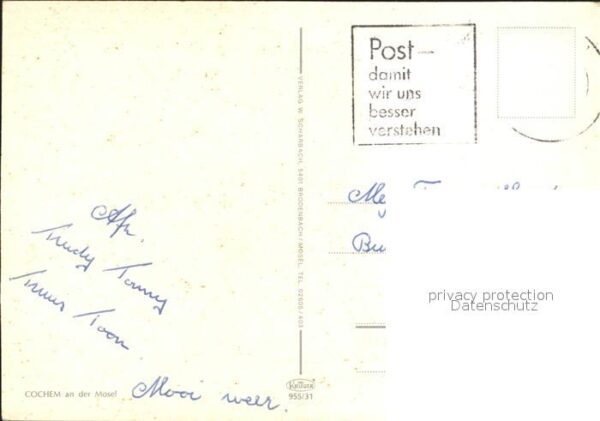 Post-
damit
wir uns
besser
verstehen
VERLAG W. SCHARBACH, 5401 BRODENBACH / MOSEL, TEL. 02605/403
Afz.
Trudy Tonny
Truus Toon.
Mooi weer.
COCHEM an der Mosel
Krüger
955/31
privacy protection
Datenschutz